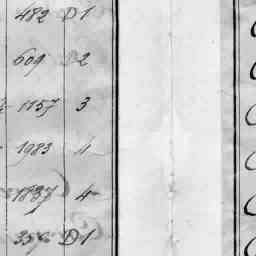 482 D 1
609 D 2
1157 3
1983 4
1837 4
356 D 1